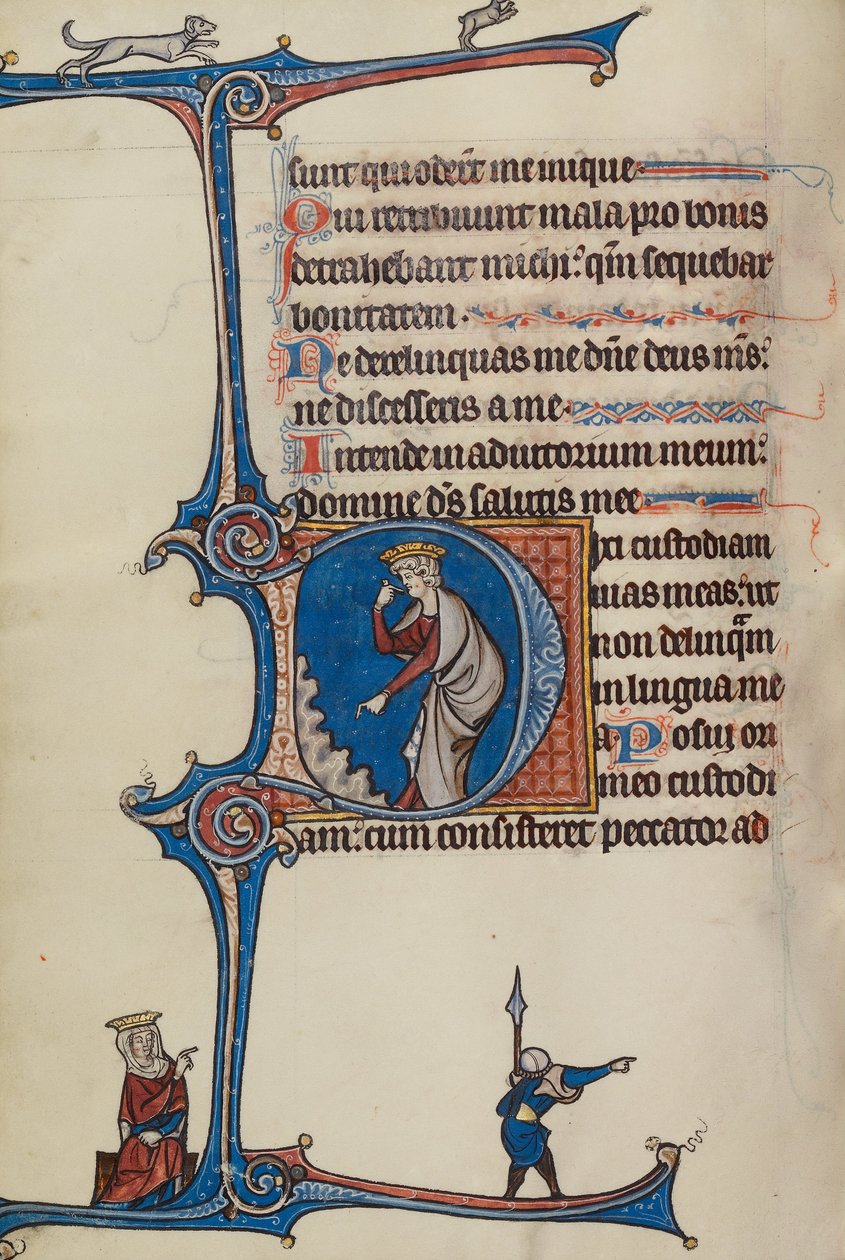 sunt qui oder̄t me inique
Qui retribuunt mala pro bonis
detrahebant michi: qm̄ sequebar
bonitatem.
Ne derelinquas me dn̄e deus m̄s:
ne discesseris a me.
Intende in adiutorium meum:
domine d̄s salutis mee
Dixi custodiam
uias meas: ut
non delinqᵃm
in lingua me
a. Posui ori
meo custodi
am: cum consisteret peccator ad